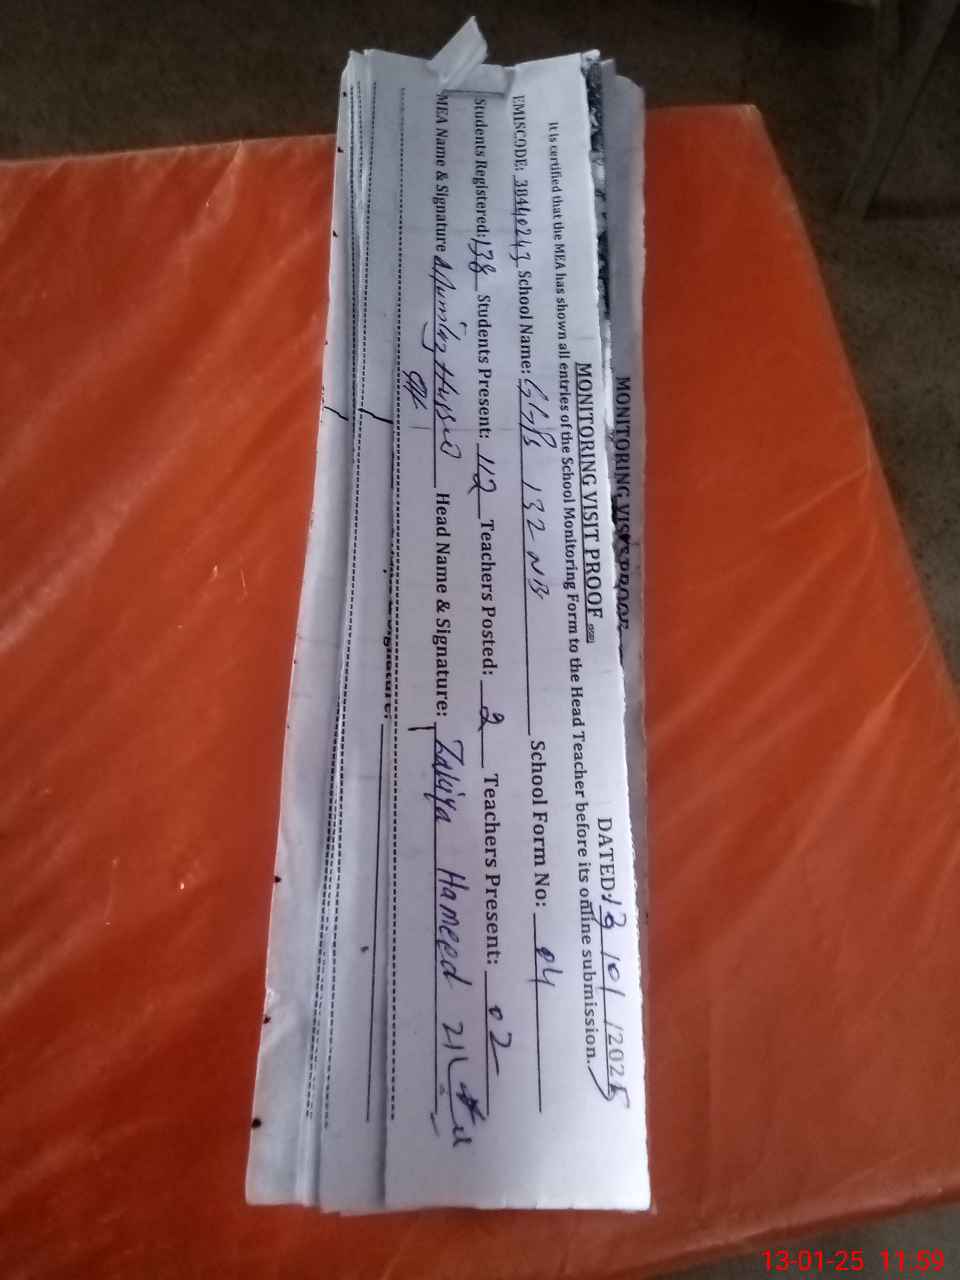 MONITORING VISIT PROOF
MONITORING VISIT PROOF
DATED: 13/01/2025
It is certified that the MEA has shown all entries of the School Monitoring Form to the Head Teacher before its online submission.
EMISCODE: 38440243 School Name: GGPS 132 NB School Form No: 04
Students Registered: 138 Students Present: 112 Teachers Posted: 2 Teachers Present: 02
MEA Name & Signature Head Name & Signature: Zakiya Hameed
& Signature:
13-01-25 11:59